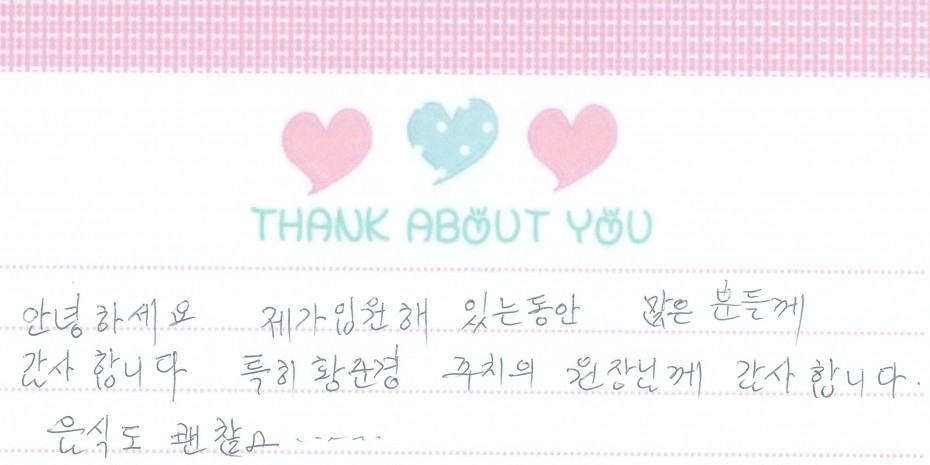 THANK ABOUT YOU
안녕하세요 제가입원해 있는동안 많은 분들께
감사 합니다 특히 황순경 주치의 원장님께 감사합니다.
음식도 괜찮